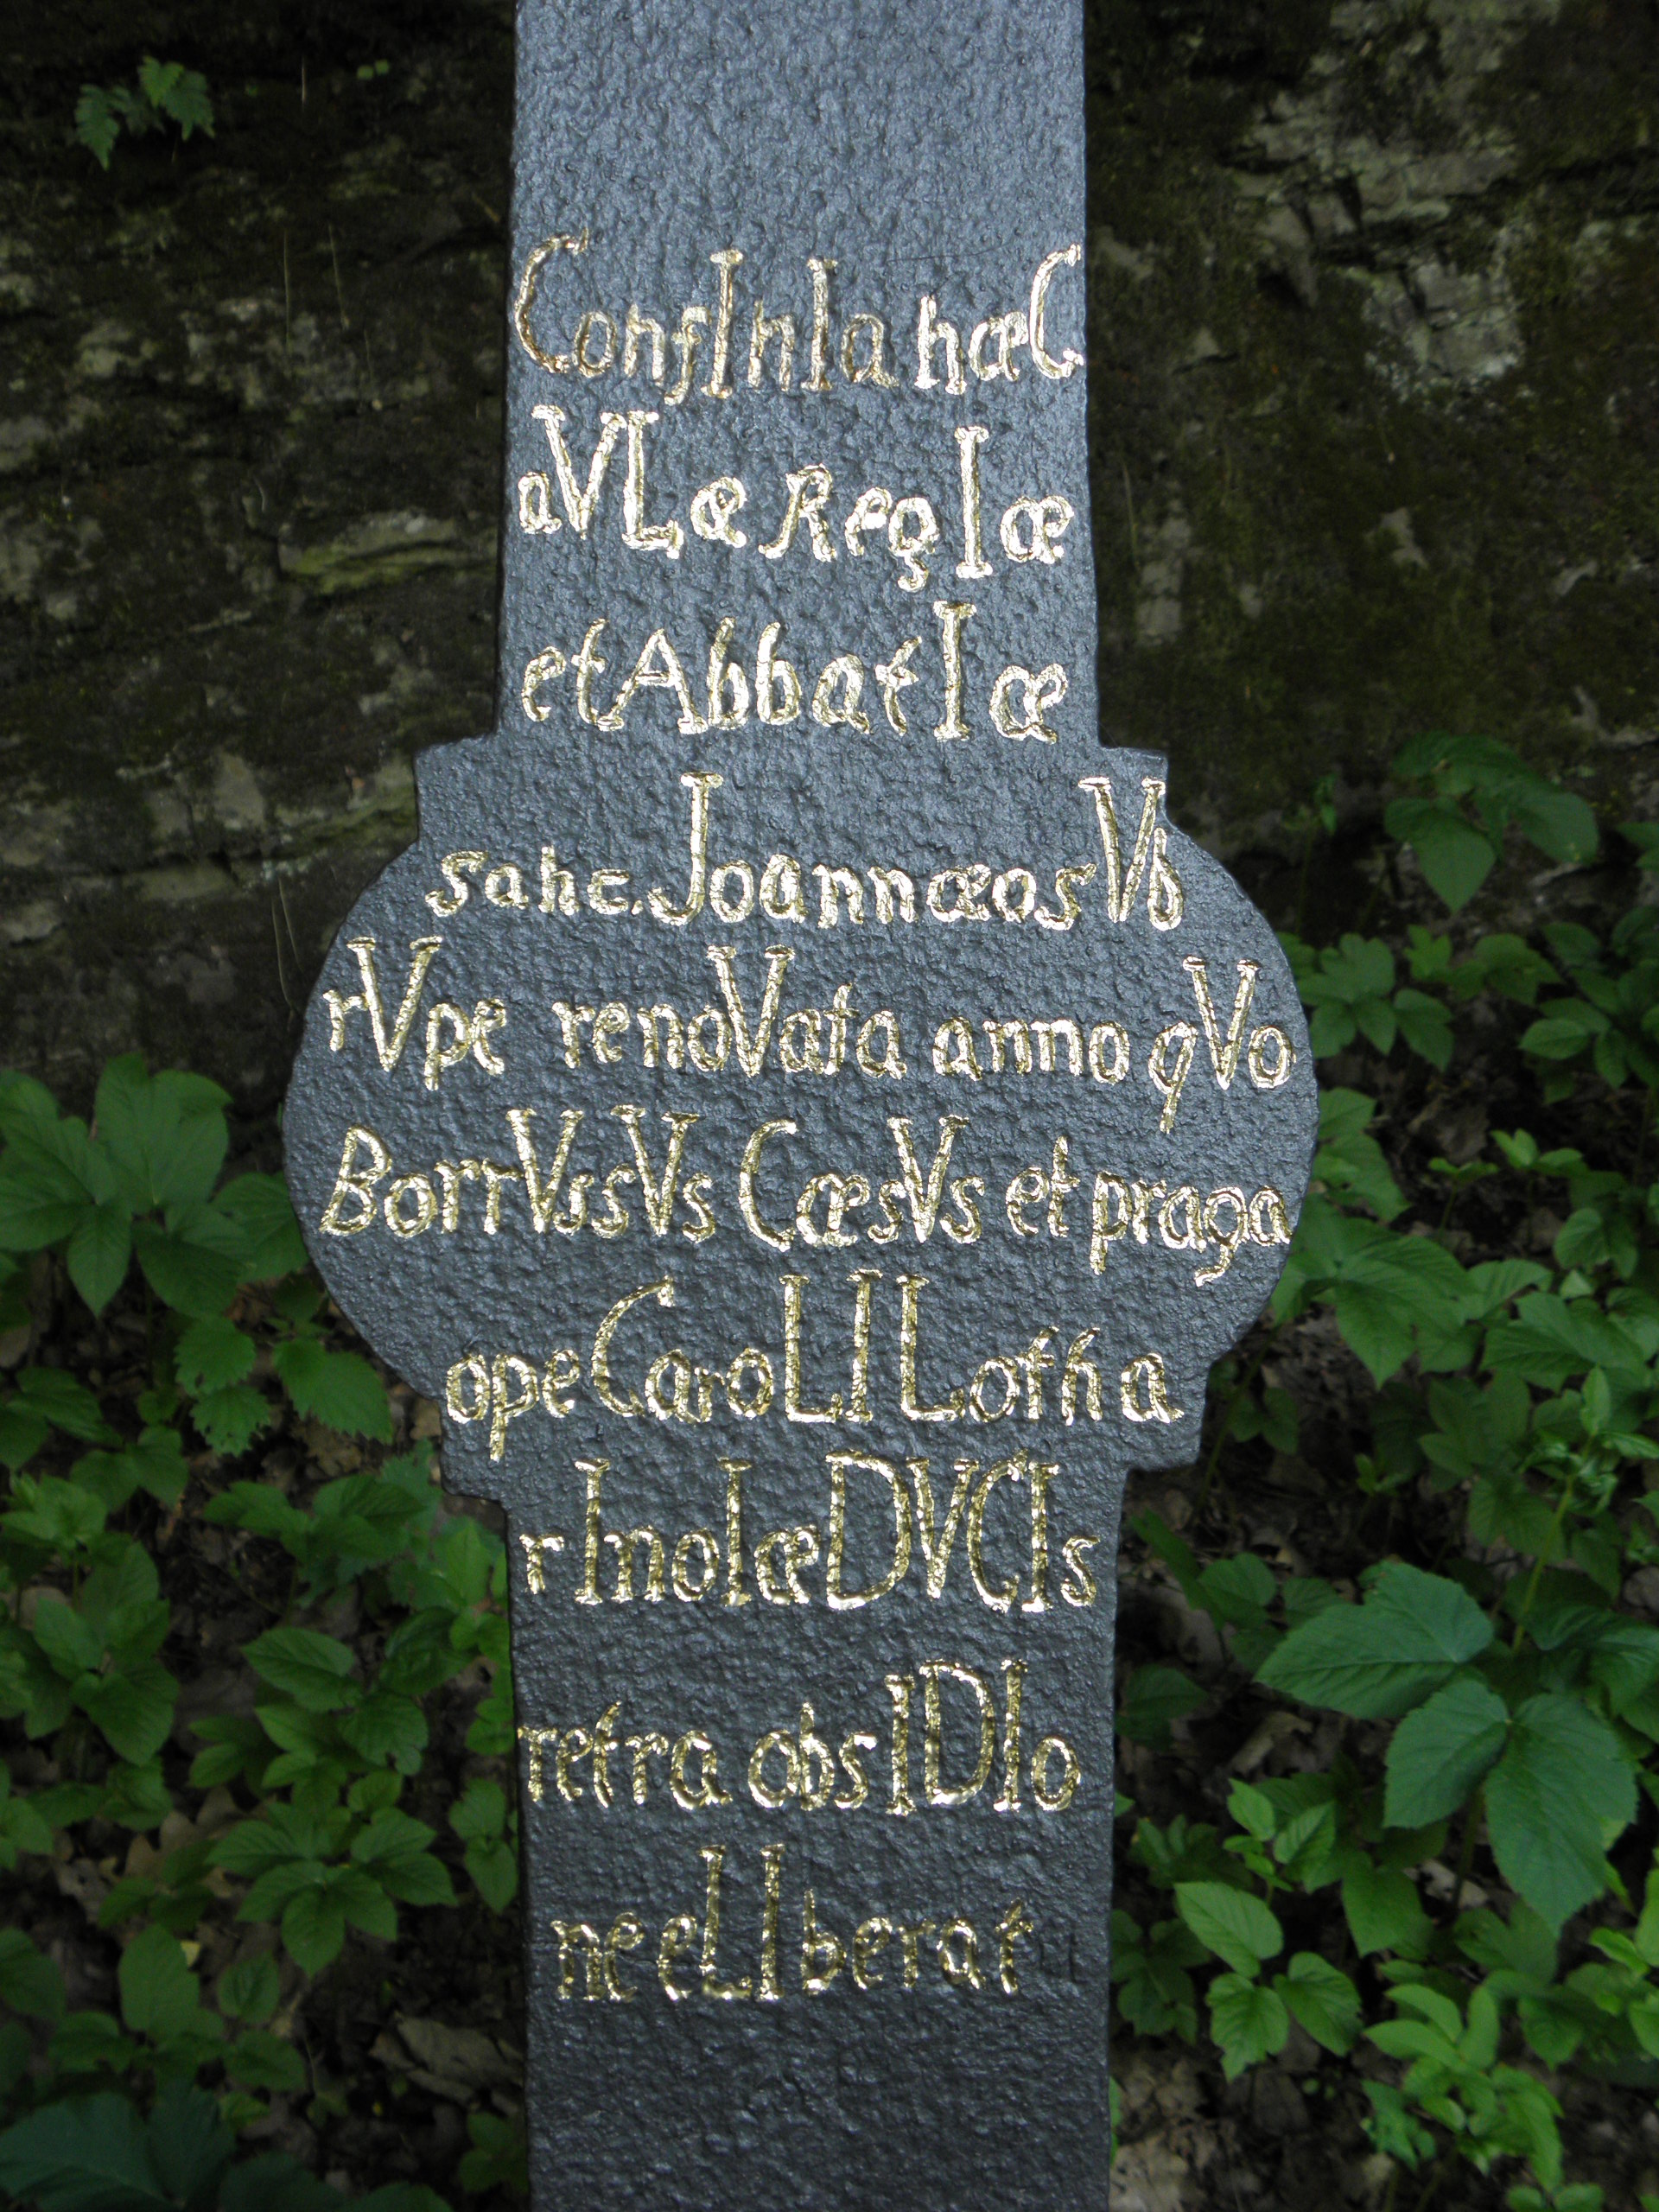 ConfInIa hæC
aVLæ RegIæ
et AbbatIæ
sanc. JoannæosVb
rVpe renoVata anno qVo
BorrVssVs CæsVs et praga
ope CaroLI Lotha
rInoIæ DVCIs
retra obsIDIo
ne eLIberat